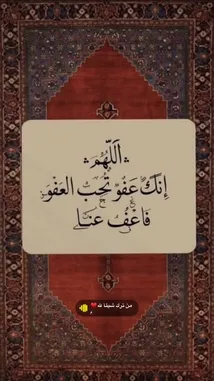 اَللّٰهُمَّ
إِنَّكَ عَفُوٌّ تُحِبُّ العَفْوَ
فَاعْفُ عَنَّا
من ترك شيئا لله